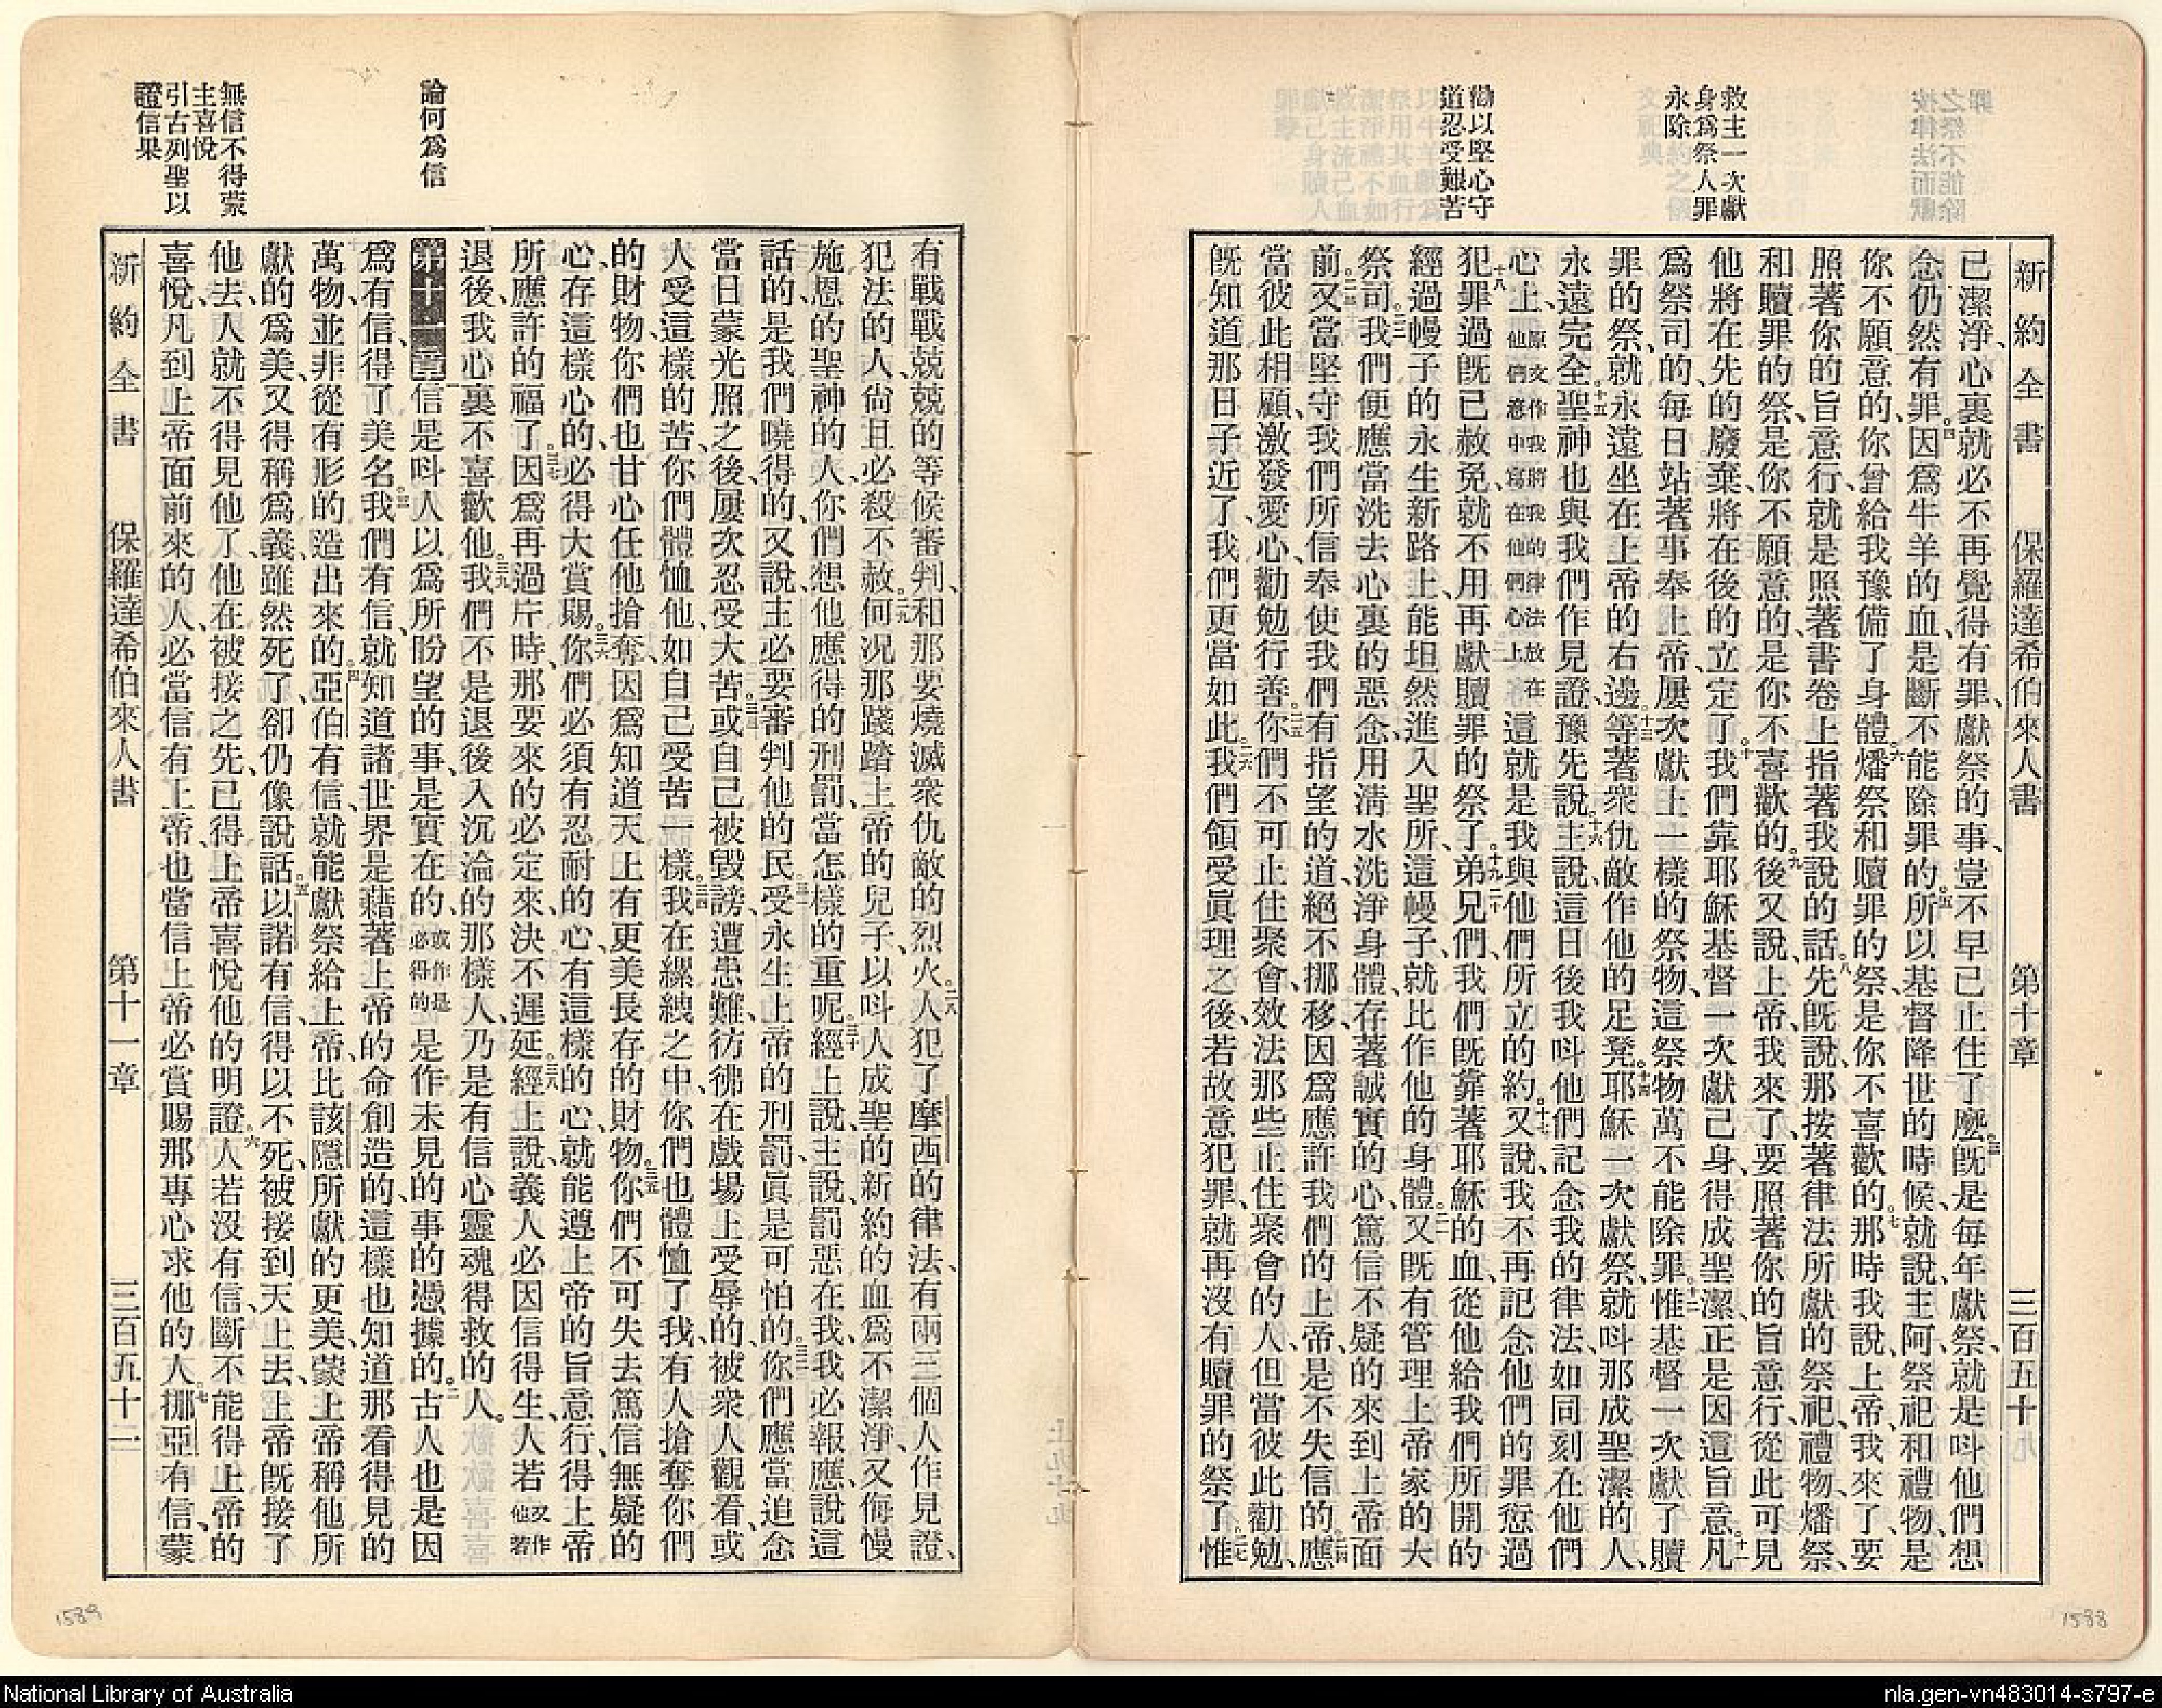 救主一次獻
身爲祭人罪
永除
勸以堅心守
道忍受艱苦
新約全書 保羅達希伯來人書 第十章 三百五十
已潔淨、心裏就必不再覺得有罪、獻祭的事、豈不早已止住了麽。三旣是每年獻祭、就是呌他們想
念仍然有罪。四因爲牛羊的血、是斷不能除罪的。五所以基督降世的時候、就說、主阿、祭祀和禮物、是
你不願意的、你曾給我豫備了身體。六燔祭和贖罪的祭、是你不喜歡的。七那時我說、上帝、我來了、要
照著你的旨意行、就是照著書卷上指著我說的話。八先旣說、那按著律法所獻的祭祀禮物燔祭、
和贖罪的祭、是你不願意的、是你不喜歡的。九後又說、上帝、我來了、要照著你的旨意行、從此可見
他將在先的廢棄、將在後的立定了。十我們靠耶穌基督一次獻己身、得成聖潔、正是因這旨意。十一凡
爲祭司的、每日站著事奉上帝、屢次獻上一樣的祭物、這祭物萬不能除罪。十二惟基督一次獻了贖
罪的祭、就永遠坐在上帝的右邊。十三等著衆仇敵作他的足凳。十四耶穌一次獻祭、就呌那成聖潔的人、
永遠完全。十五聖神也與我們作見證、豫先說。十六主說、這日後我呌他們記念我的律法、如同刻在他們
心上、原文作我將我的律法放在他們意中寫在他們心上這就是我與他們所立的約。十七又說、我不再記念他們的罪愆過
犯。十八罪過旣已赦免、就不用再獻贖罪的祭了。十九二十弟兄們、我們旣靠著耶穌的血、從他給我們所開的
經過幔子的永生新路上、能坦然進入聖所、這幔子就比作他的身體。二一又旣有管理上帝家的大
祭司。二二我們便應當洗去心裏的惡念、用淸水洗淨身體、存著誠實的心、篤信不疑的來到上帝面
前。二三又當堅守我們所信奉使我們有指望的道、絕不挪移、因爲應許我們的上帝、是不失信的。二四應
當彼此相顧、激發愛心、勸勉行善。二五你們不可止住聚會、效法那些止住聚會的人、但當彼此勸勉、
旣知道那日子近了、我們更當如此。二六我們領受眞理之後、若故意犯罪、就再沒有贖罪的祭了。二七惟
論何爲信
無信不得蒙
主喜悅
引古列聖以
證信果
有戰戰兢兢的等候審判、和那要燒滅衆仇敵的烈火。二八人犯了摩西的律法、有兩三個人作見證、
犯法的人、尙且必殺不赦。二九何况那踐踏上帝的兒子、以呌人成聖的新約的血爲不潔淨、又侮慢
施恩的聖神的人、你們想他應得的刑罰、當怎樣的重呢。三十經上說、主說、罰惡在我、我必報應、說這
話的、是我們曉得的、又說、主必要審判他的民。三一受永生上帝的刑罰、眞是可怕的。三二你們應當追念
當日蒙光照之後、屢次忍受大苦。三三或自己被毀謗、遭患難、彷彿在戲場上受辱的、被衆人觀看、或
人受這樣的苦、你們體恤他、如自己受苦一樣。三四我在縲絏之中、你們也體恤了我、有人搶奪你們
的財物、你們也甘心任他搶奪、因爲知道天上有更美長存的財物。三五你們不可失去篤信無疑的
心、存這樣心的、必得大賞賜。三六你們必須有忍耐的心、有這樣的心、就能遵上帝的旨意行、得上帝
所應許的福了。三七因爲再過片時、那要來的必定來、決不遲延。三八經上說、義人必因信得生、人若又作他若
退後、我心裏不喜歡他。三九我們不是退後入沉淪的那樣人、乃是有信心靈魂得救的人。
第十一章一信是呌人以爲所盼望的事、是實在的、或作是必得的是作未見的事的憑據的。二古人也是因
爲有信、得了美名。三我們有信、就知道諸世界是藉著上帝的命創造的、這樣也知道那看得見的
萬物、並非從有形的造出來的。四亞伯有信、就能獻祭給上帝、比該隱所獻的更美、蒙上帝稱他所
獻的爲美、又得稱爲義、雖然死了、卻仍像說話。五以諾有信、得以不死、被接到天上去、上帝旣接了
他去、人就不得見他了、他在被接之先、已得上帝喜悅他的明證。六人若沒有信、斷不能得上帝的
喜悅、凡到上帝面前來的人、必當信有上帝、也當信上帝必賞賜那專心求他的人。七挪亞有信、蒙
新約全書 保羅達希伯來人書 第十一章 三百五十二
1589
1588
National Library of Australia
nla.gen-vn483014-s797-e